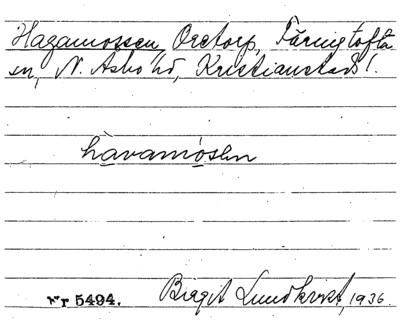 Hagamossen, Oretorp, Färingtofta
sn, N. Åsbo hd, Kristianstads l.
håvamósen
Nr 5494.
Birgit Lundkvist, 1936.